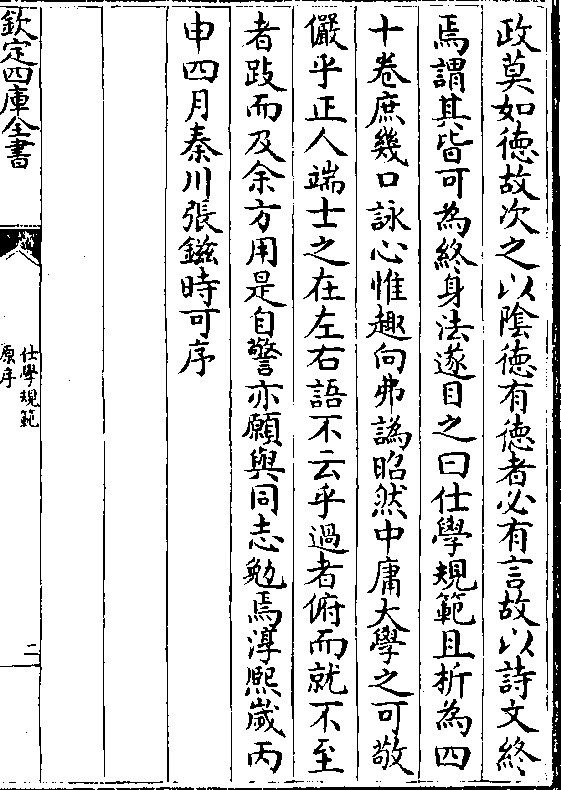 政莫如徳故次之以隂徳有徳者必有言故以詩文終
焉謂其皆可為終身法遂目之曰仕學規範且折為四
十卷庶幾口詠心惟趣向弗譌昭然中庸大學之可敬
儼乎正人端士之在左右語不云乎過者俯而就不至
者跂而及余方用是自警亦願與同志勉焉淳熙嵗丙
申四月秦川張鎡時可序
欽定四庫全書
仕學規範
原序
二